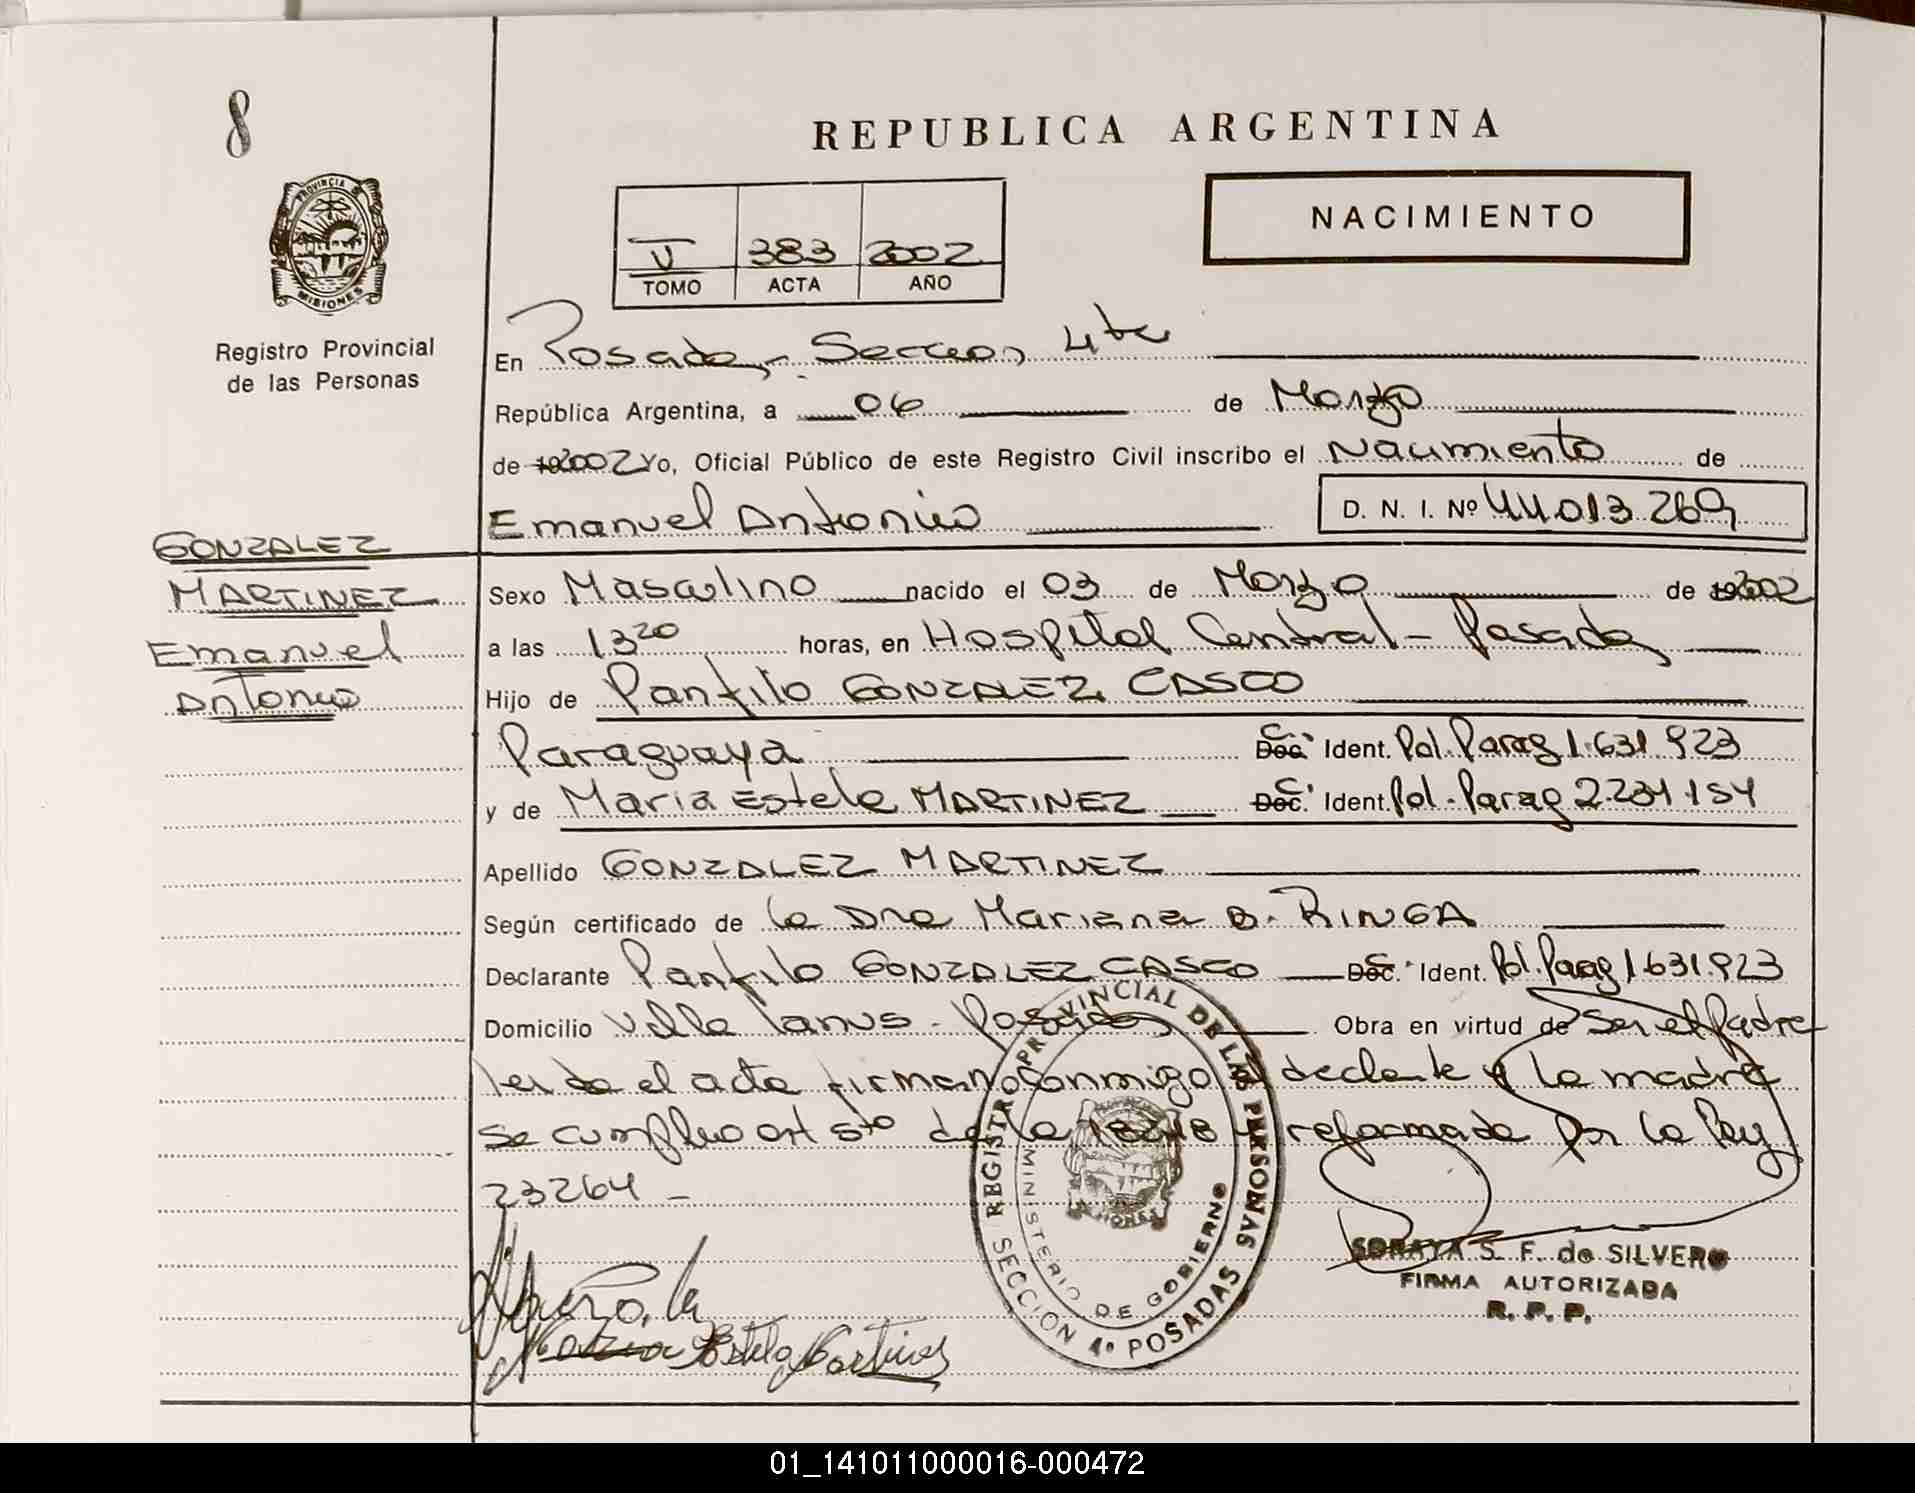 8
REPUBLICA ARGENTINA
PROVINCIA DE
MISIONES
Registro Provincial
de las Personas
V 383 2002
TOMO ACTA AÑO
NACIMIENTO
En Posadas, Seccion 4ta
República Argentina, a 06 de Marzo
de 2002 Yo, Oficial Público de este Registro Civil inscribo el Nacimiento de
Emanuel Antonio D. N. I. Nº 44.013.269
GONZALEZ
MARTINEZ
Emanuel
Antonio
Sexo Masculino nacido el 03 de Marzo de 2002
a las 13 20 horas, en Hospital Central - Posadas
Hijo de Panfilo GONZALEZ CASCO
Paraguaya Doc. C. Ident. Pol. Parag 1.631.923
y de Maria Estela MARTINEZ Doc. C. Ident. Pol. Parag 2.234.154
Apellido GONZALEZ MARTINEZ
Según certificado de la Dra Mariana B. RINGA
Declarante Panfilo GONZALEZ CASCO Doc. C. Ident. Pol. Parag 1.631.923
Domicilio Villa Lanus - Posadas Obra en virtud de Ser el Padre
leida el acta firman conmigo el declante y la madre
se cumplio art 5to de la 18248 reformada por la Ley
23264 -
REGISTRO PROVINCIAL DE LAS PERSONAS
SECCION 4º POSADAS
MINISTERIO DE GOBIERNO
Estela Martinez
SORAYA S. F. de SILVERO
FIRMA AUTORIZADA
R. P. P.
01_141011000016-000472